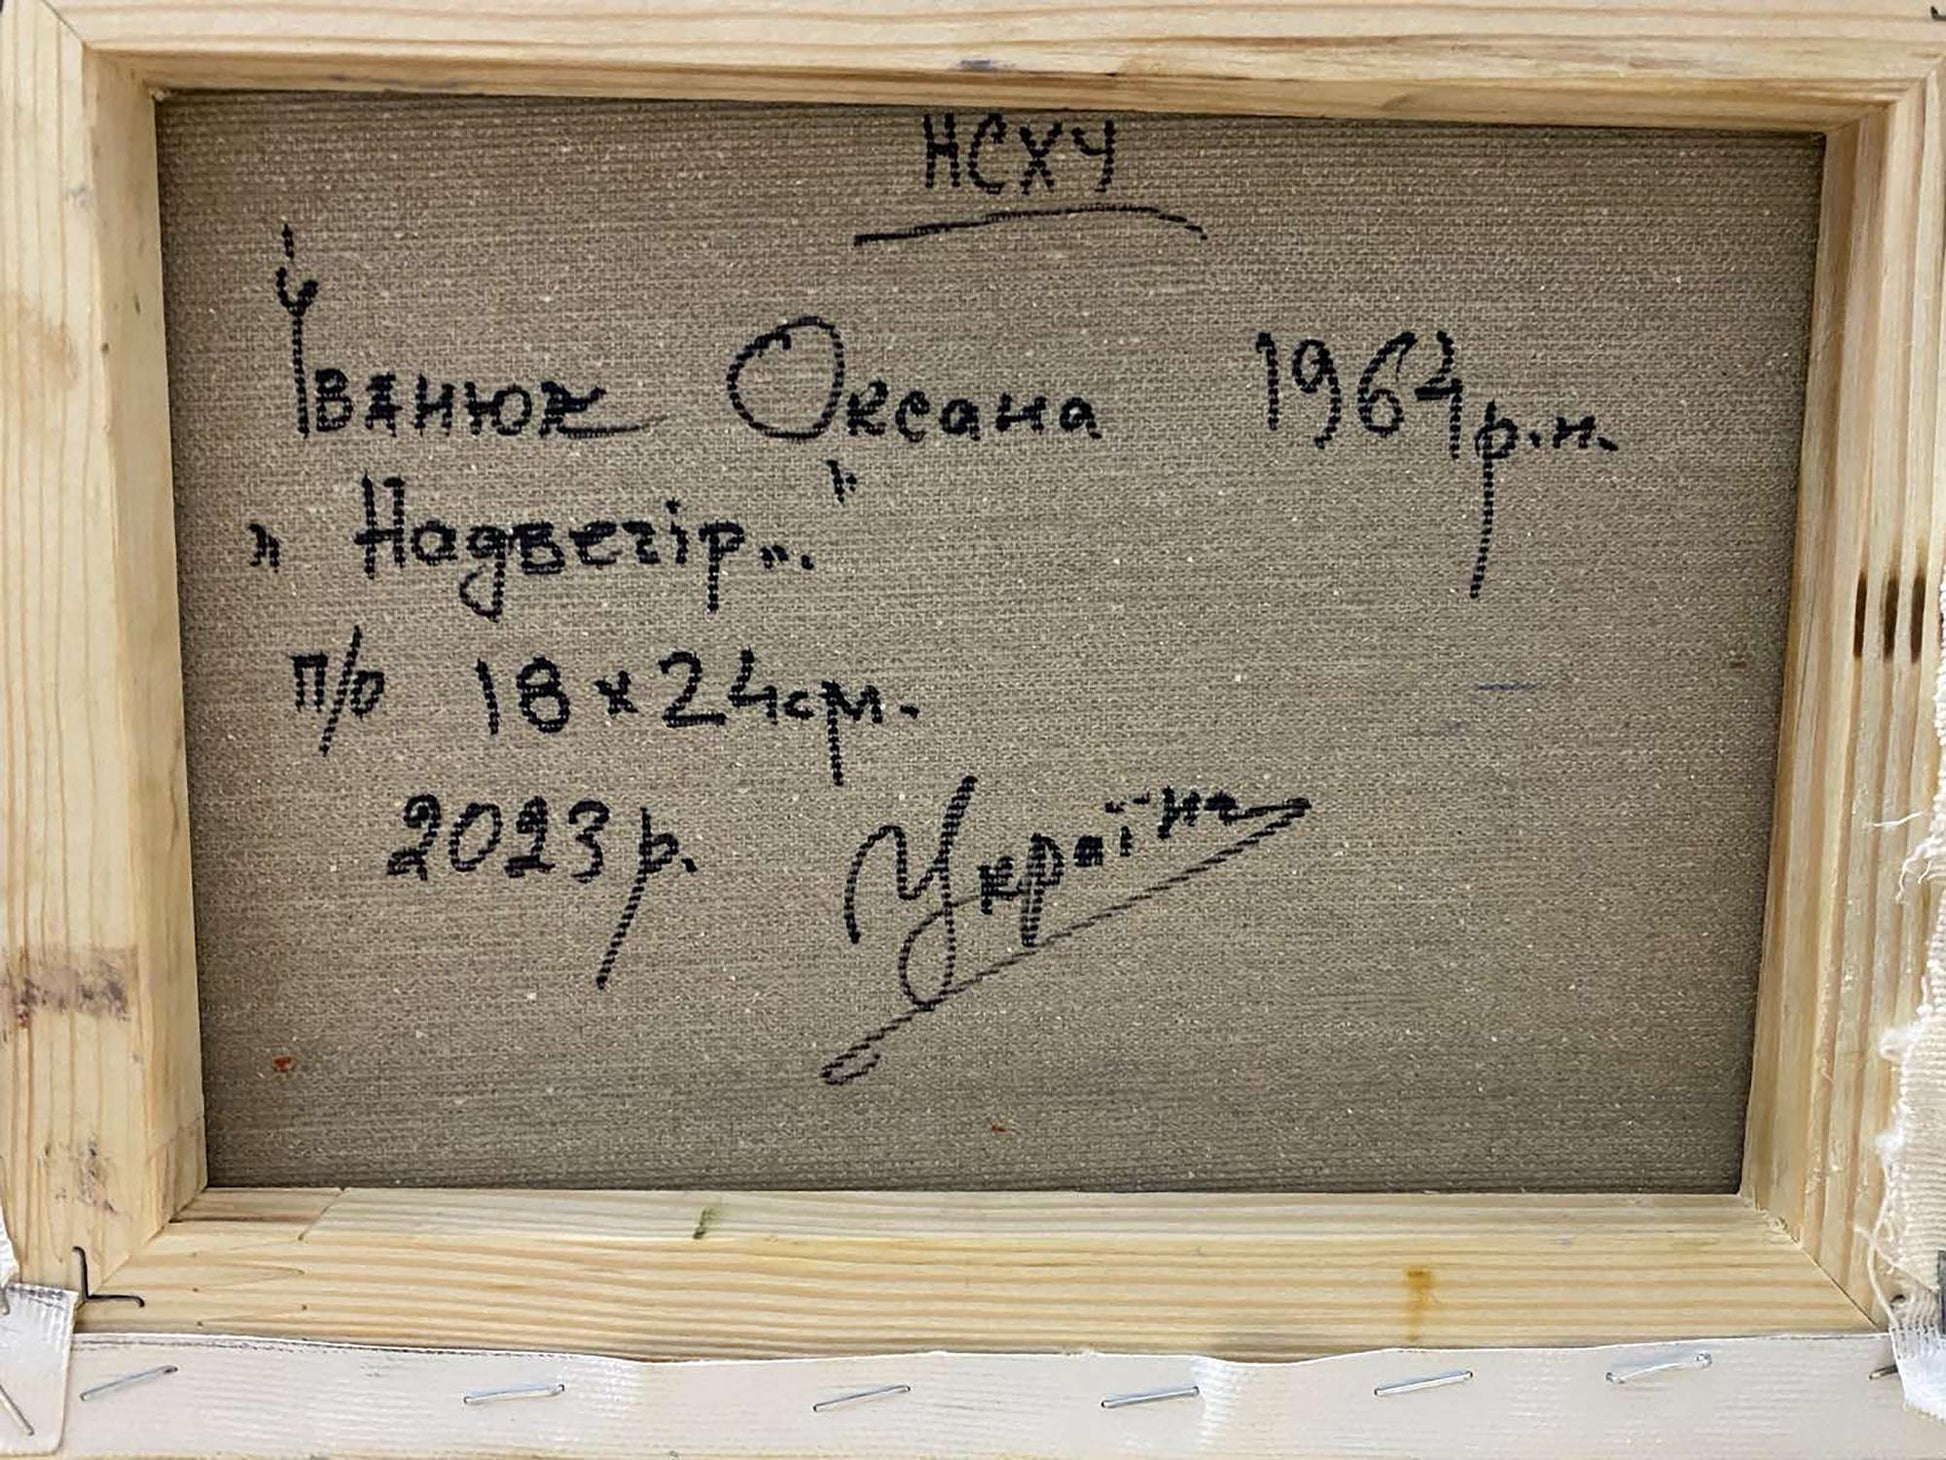 НСХУ
Іванюк Оксана 1964 р.н.
„Надвегір..."
п/о 18 х 24 см.
2023 р. Україна